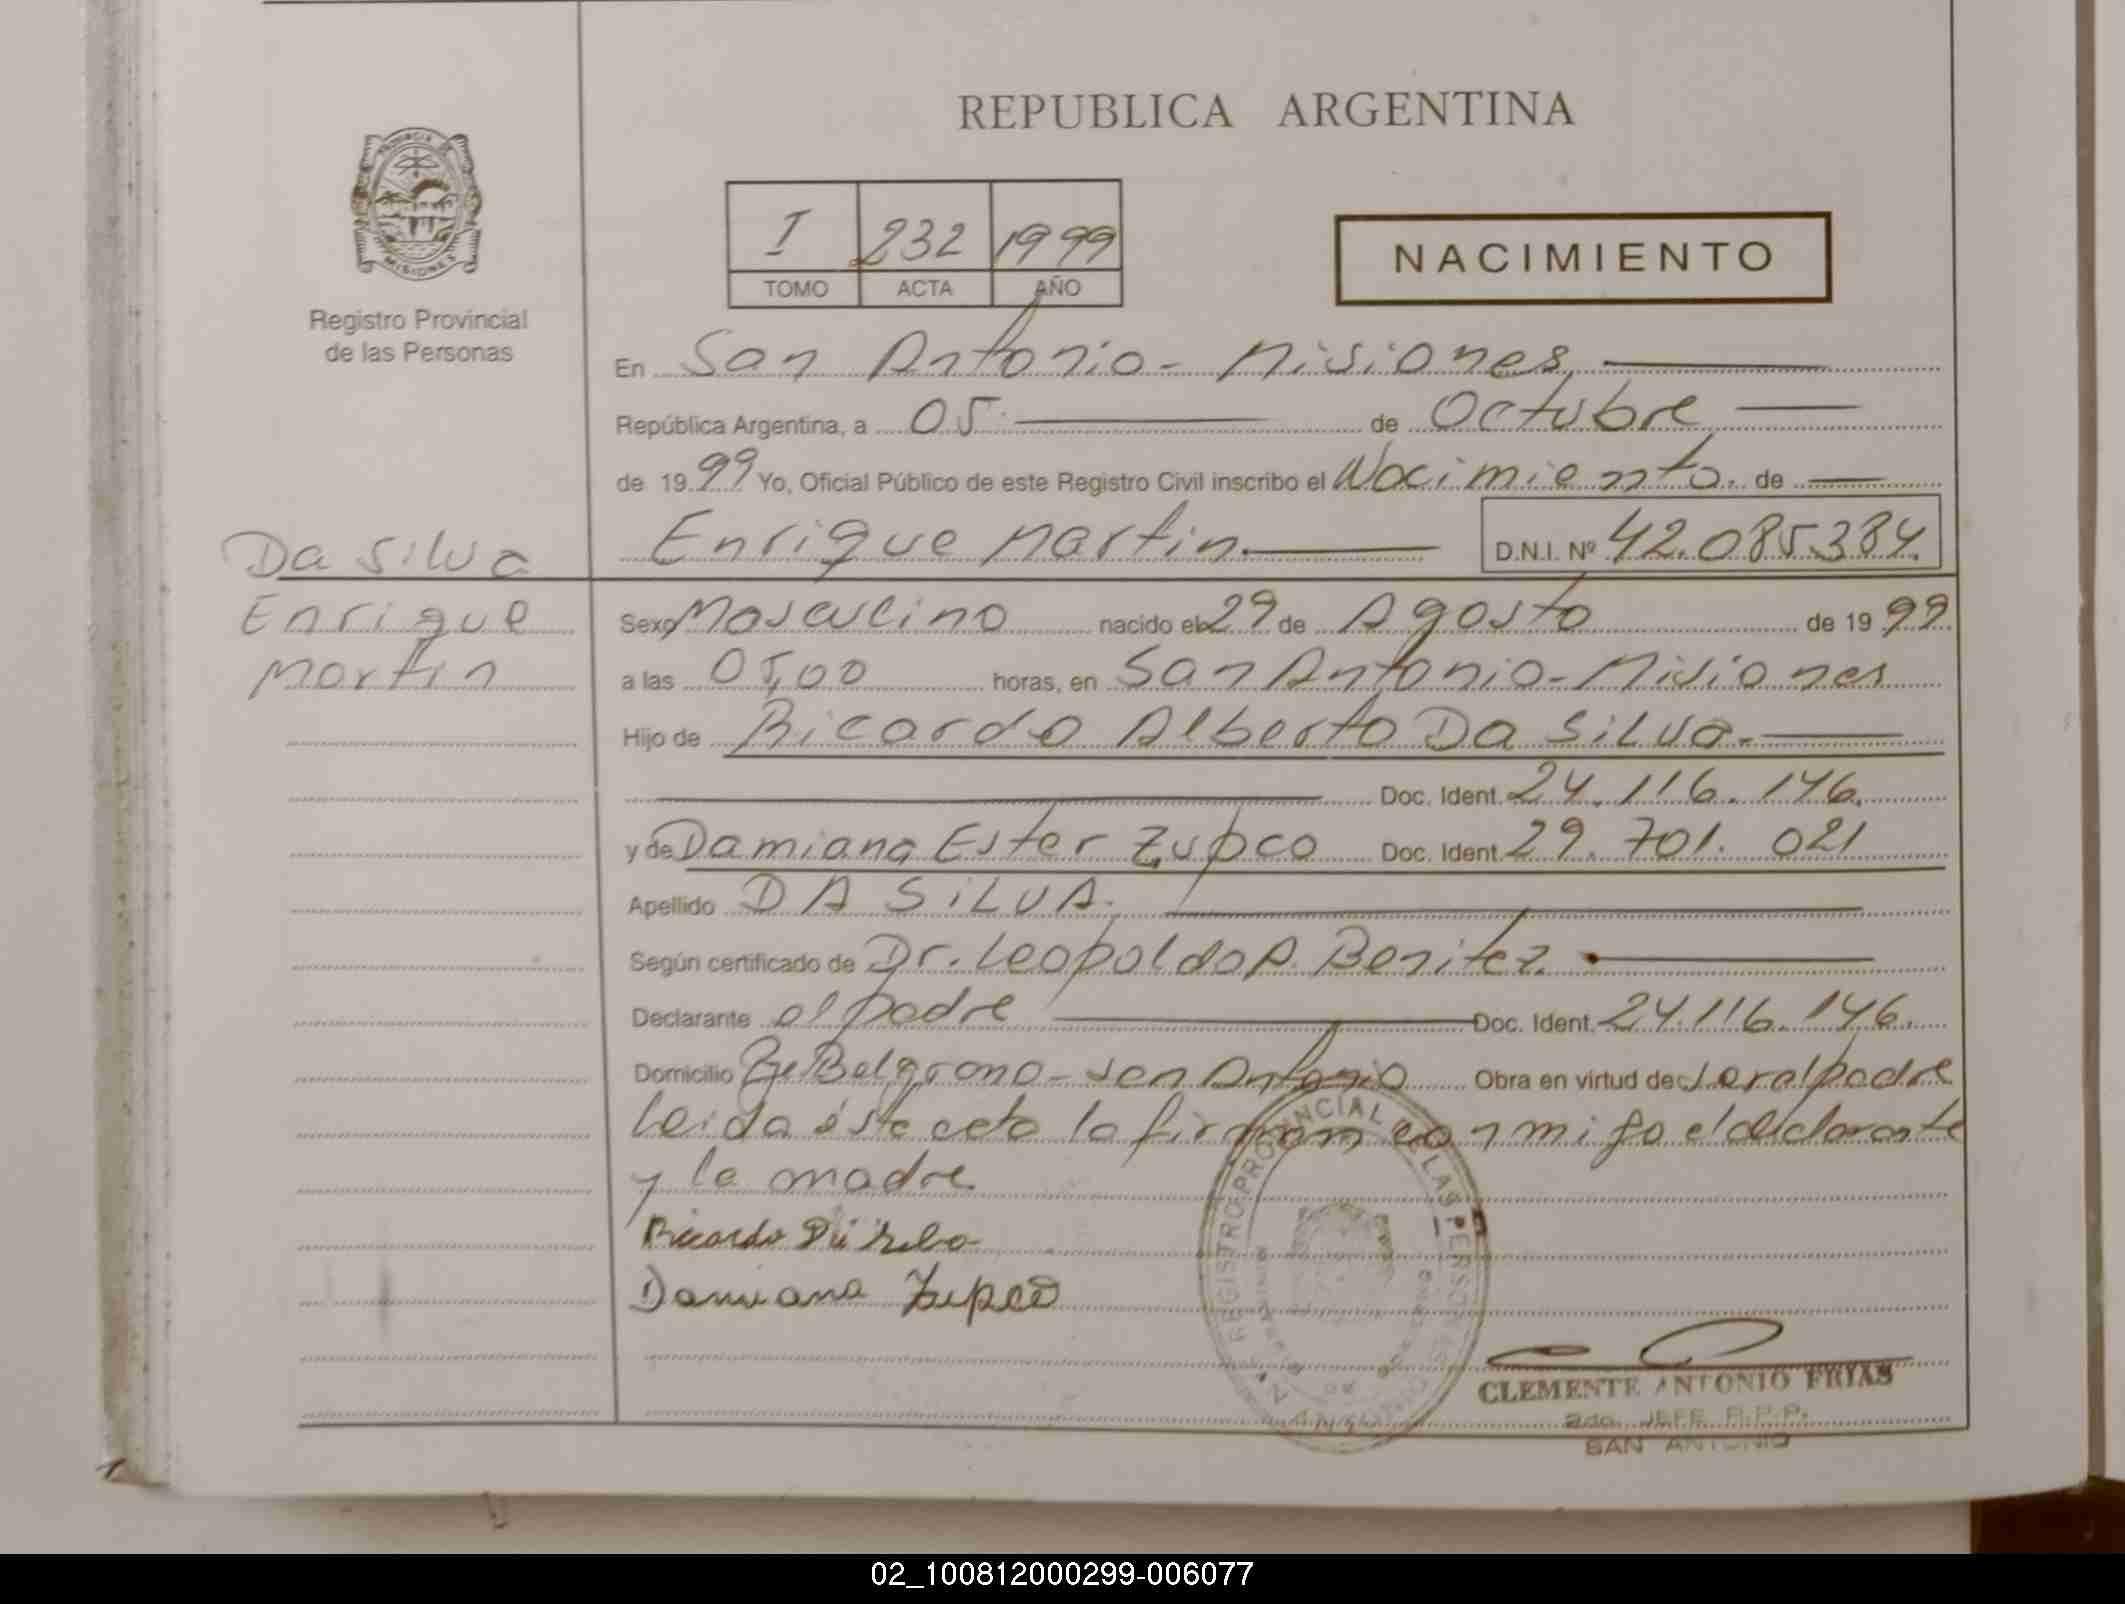 REPUBLICA ARGENTINA
PROVINCIA DE
MISIONES
Registro Provincial
de las Personas
I 232 1999
TOMO ACTA AÑO
NACIMIENTO
En San Antonio - Misiones
República Argentina, a 05 de Octubre
de 19 99 Yo, Oficial Público de este Registro Civil inscribo el Nacimiento. de
Enrique Martin. D.N.I. Nº 42.085.384.
Da Silva
Enrique
Martin
Sexo Masculino nacido el 29 de Agosto de 19 99.
a las 05,00 horas, en San Antonio - Misiones
Hijo de Ricardo Alberto Da Silva.
Doc. Ident. 24.116.146.
y de Damiana Ester Zupco Doc. Ident. 29.701.021
Apellido DA SILVA.
Según certificado de Dr. Leopoldo A. Benitez.
Declarante el padre Doc. Ident. 24.116.146.
Domicilio Belgrano - San Antonio Obra en virtud de ser el padre
Leida éste acta la firman conmigo el declarante
y la madre
Ricardo
Damiana Zupco
REGISTRO PROVINCIAL DE LAS PERSONAS
CLEMENTE ANTONIO FRYAS
2do. JEFE R.P.P.
SAN ANTONIO
02_100812000299-006077